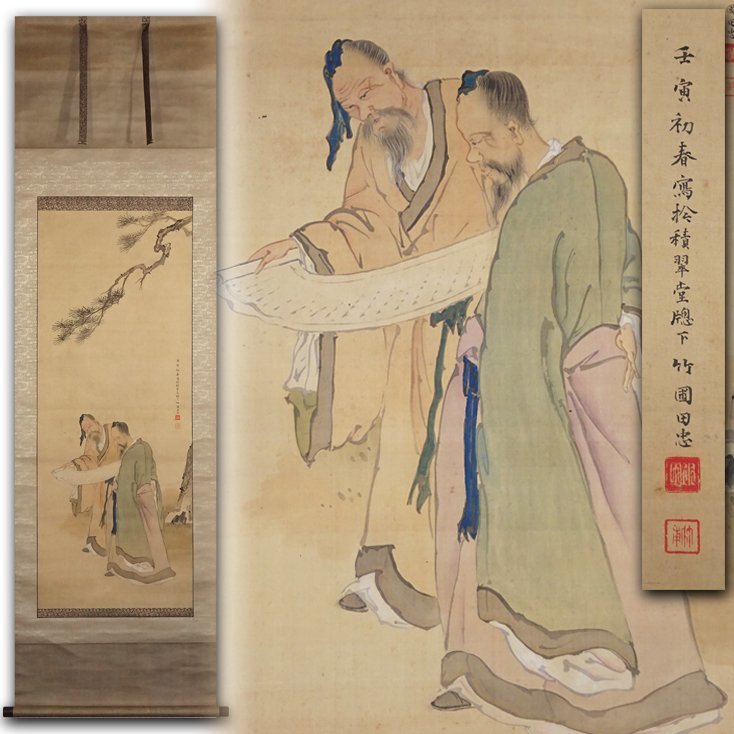 壬寅初春寫於積翠堂牕下竹圃田忠